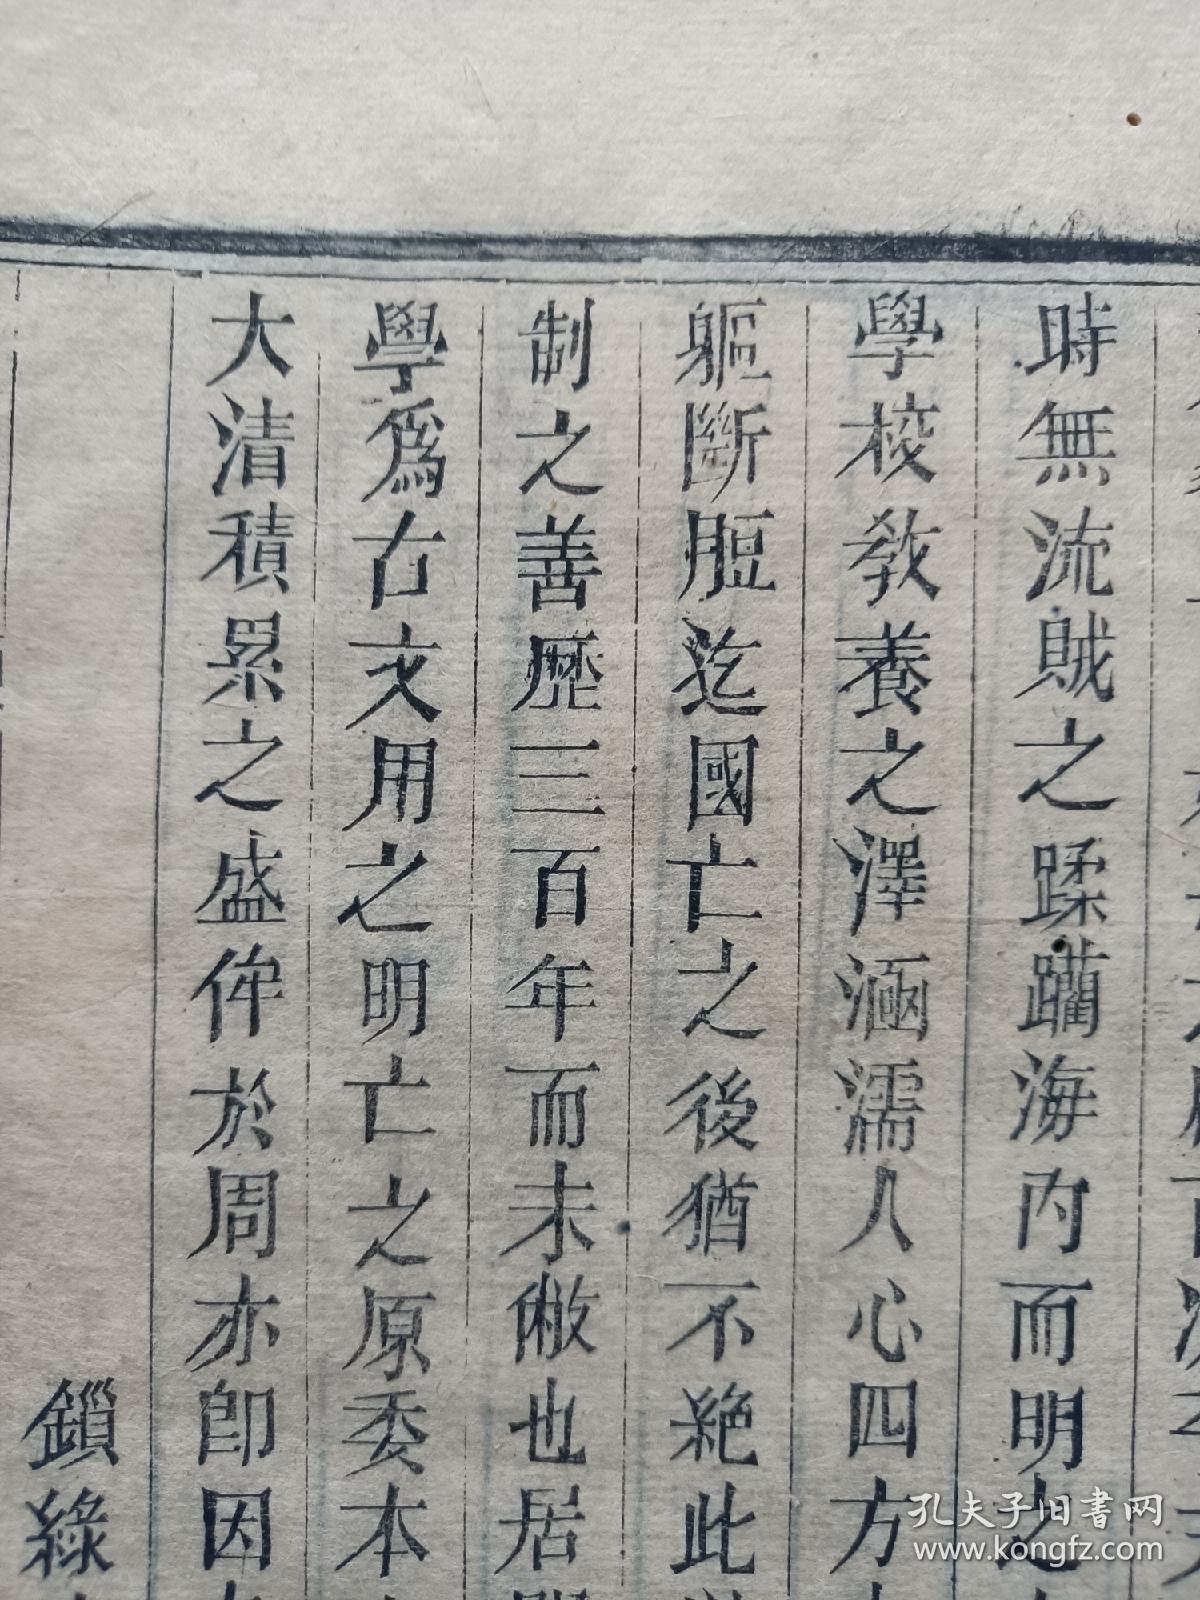 時無流賊之蹂躪海内而明之
學校敎養之澤涵濡人心四方
軀斷脰迄國亡之後猶不絶此
制之善歷三百年而未敝也居
學爲古文用之明亡之原委本
大清積累之盛侔於周亦卽因
鎖綠
孔夫子旧書网
www.kongfz.com